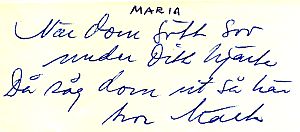 MARIA
När dom gått sov
under Ditt hjärta
Då såg dom ut så här
hos Mack